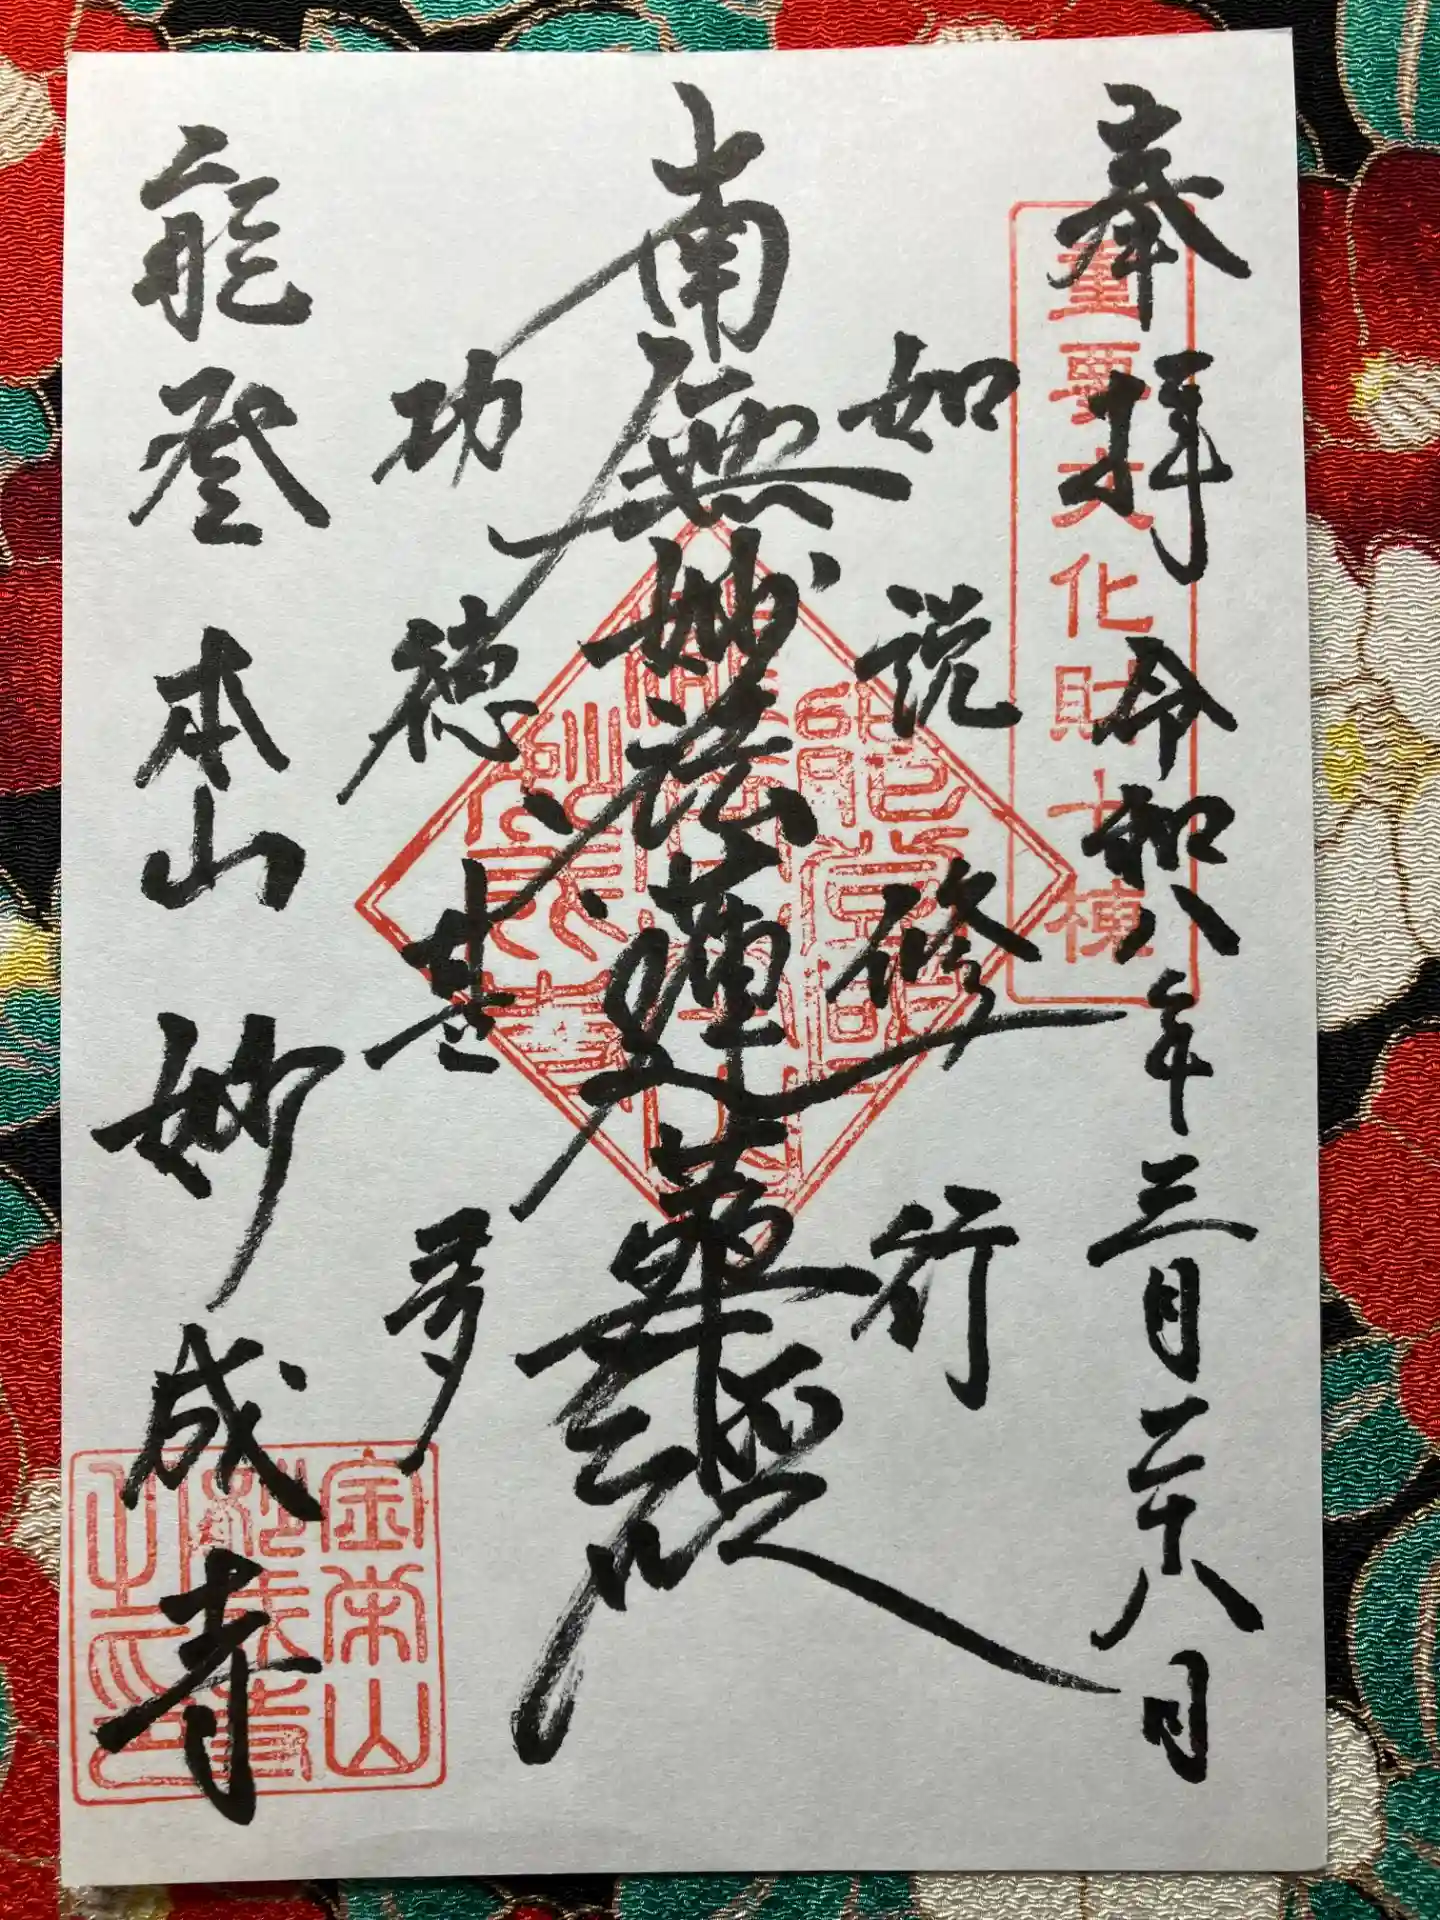 奉拝 令和八年三月二十八日
重要文化財十棟
如説修行
南無妙法蓮華経
功徳甚多
能登本山 妙成寺
金栄山妙成寺之印